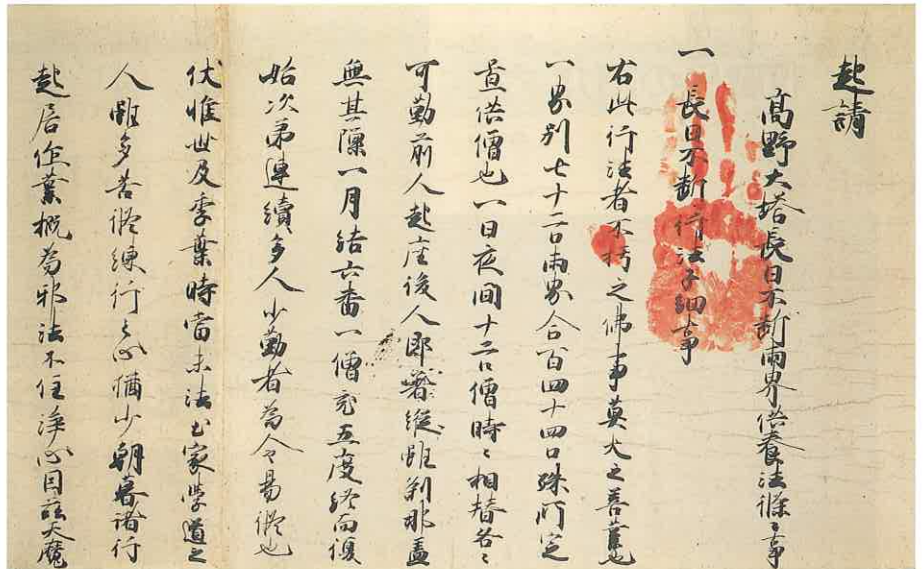 起請
高野大塔長日不断両界供養法條々事
一 長日不断行法子細事
右此行法者不朽之佛事莫大之善業也
一界別七十二口両界合百四十四口殊所定
置供僧也一日夜間十二口僧時々相替各々
可勤前人起座後人即着縦雖刹那盖
無其隙一月結六番一僧充五度終而復
始次第連續多人少勤者為令易修也
伏惟世及季葉時當末法出家學道之
人雖多苦修練行之心猶少朝暮諸行
起居作業概為邪法不住淨心因茲天魔